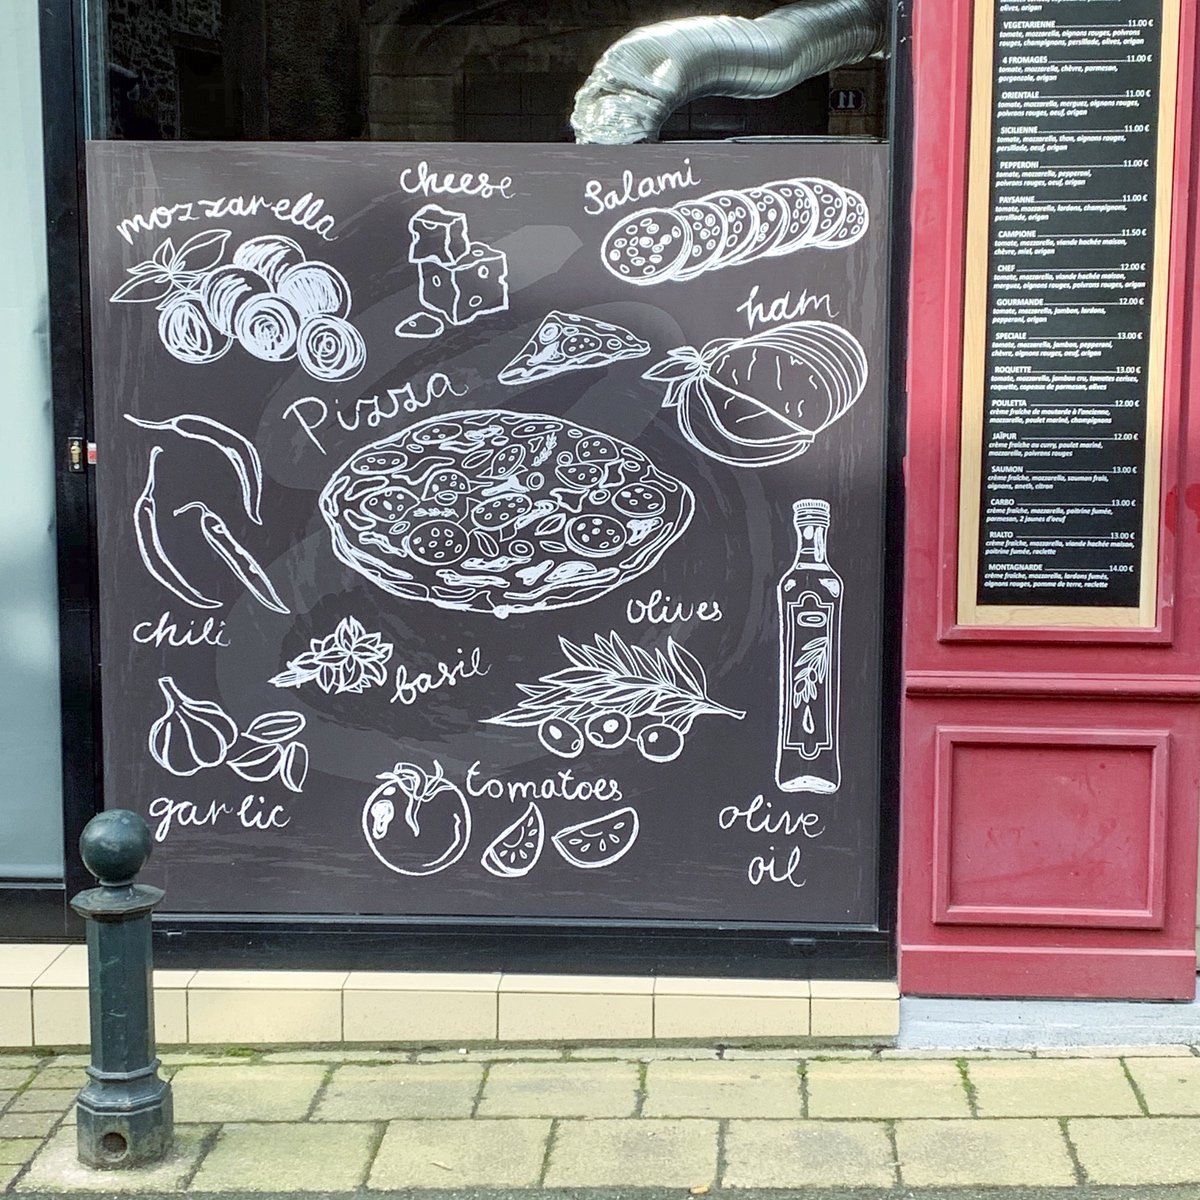 mozzarella
cheese
Salami
ham
Pizza
chili
basil
olives
garlic
tomatoes
olive
oil
11
olives, origan
VEGETARIENNE 11.00 €
tomate, mozzarella, oignons rouges, poivrons
rouges, champignons, persillade, olives, origan
4 FROMAGES 11.00 €
tomate, mozzarella, chèvre, parmesan,
gorgonzola, origan
ORIENTALE 11.00 €
tomate, mozzarella, merguez, oignons rouges,
poivrons rouges, oeuf, origan
SICILIENNE 11.00 €
tomate, mozzarella, thon, oignons rouges,
persillade, oeuf, origan
PEPPERONI 11.00 €
tomate, mozzarella, pepperoni,
poivrons rouges, oeuf, origan
PAYSANNE 11.00 €
tomate, mozzarella, lardons, champignons,
persillade, origan
CAMPIONE 11.50 €
tomate, mozzarella, viande hachée maison,
chèvre, miel, origan
CHEF 12.00 €
tomate, mozzarella, viande hachée maison,
merguez, oignons rouges, poivrons rouges, origan
GOURMANDE 12.00 €
tomate, mozzarella, jambon, lardons,
pepperoni, origan
SPECIALE 13.00 €
tomate, mozzarella, jambon, pepperoni,
chèvre, oignons rouges, oeuf, origan
ROQUETTE 13.00 €
tomate, mozzarella, jambon cru, tomates cerises,
roquette, copeaux de parmesan, olives
POULETTA 12.00 €
crème fraîche de moutarde à l'ancienne,
mozzarella, poulet mariné, champignons
JAÏPUR 12.00 €
crème fraîche au curry, poulet mariné,
mozzarella, poivrons rouges
SAUMON 13.00 €
crème fraîche, mozzarella, saumon frais,
oignons, aneth, citron
CARBO 13.00 €
crème fraîche, mozzarella, poitrine fumée,
parmesan, 2 jaunes d'oeuf
RIALTO 13.00 €
crème fraîche, mozzarella, viande hachée maison,
poitrine fumée, raclette
MONTAGNARDE 14.00 €
crème fraîche, mozzarella, lardons fumés,
oignons rouges, pomme de terre, raclette